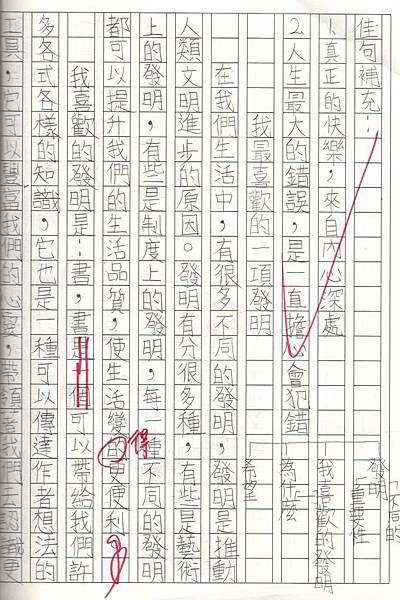 佳句補充：
1.真正的快樂，來自內心深處
2.人生最大的錯誤，是一直擔心會犯錯
發明
不同的
重要性
我喜歡的發明
為什麼
希望
我最喜歡的一項發明
在我們生活中，有很多不同的發明，發明是推動
人類文明進步的原因。發明有分很多種，有些是藝術
上的發明，有些是制度上的發明，每一種不同的發明
都可以提升我們的生活品質，使生活變的更便利。
得
我喜歡的發明是：書，書是一個可以帶給我們許
多各式各樣的知識，它也是一種可以傳達作者想法的
工具，它可以豐富我們的心靈，帶領著我們去認識更